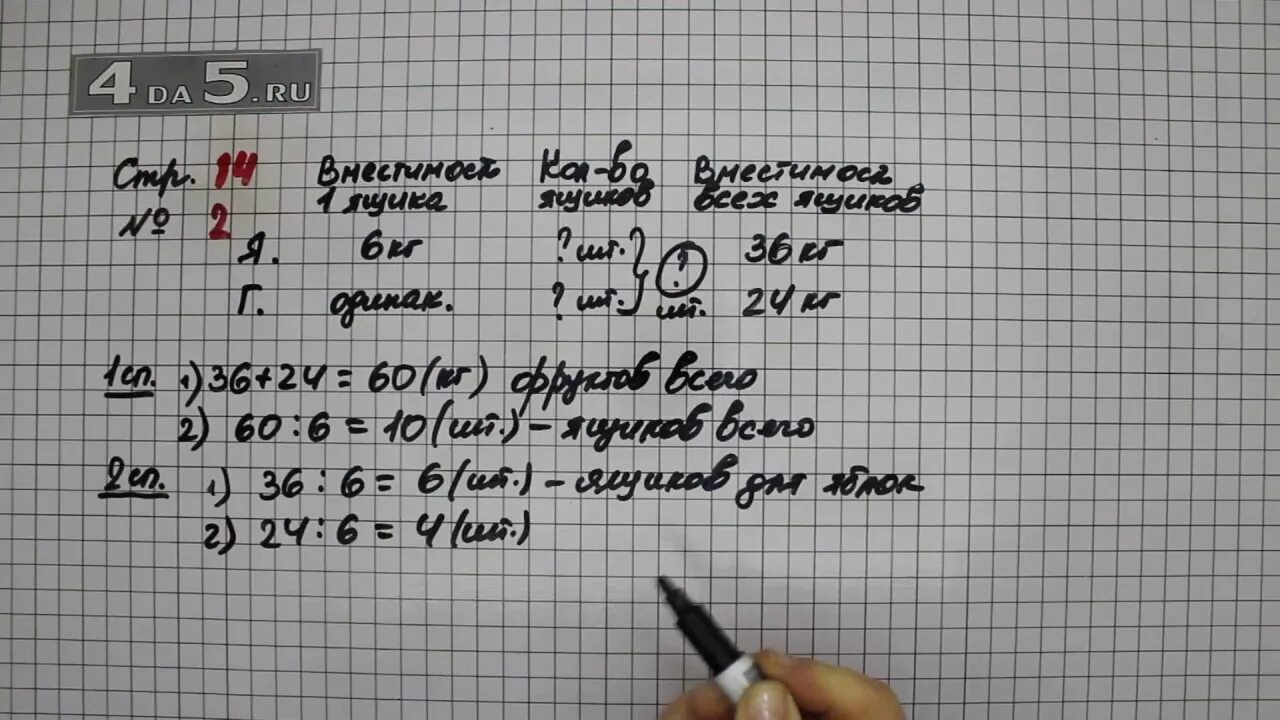 4DA5.RU
Стр. 14 Вместимость Кол-во Вместимость
№ 2 1 ящика ящиков всех ящиков
Я. 6 кг ? шт. ? 36 кг
Г. одинак. ? шт. шт. 24 кг
1 сп. 1) 36+24 = 60 (кг) фруктов всего
2) 60 : 6 = 10 (шт.) – ящиков всего
2 сп. 1) 36 : 6 = 6 (шт.) – ящиков для яблок
2) 24 : 6 = 4 (шт.)